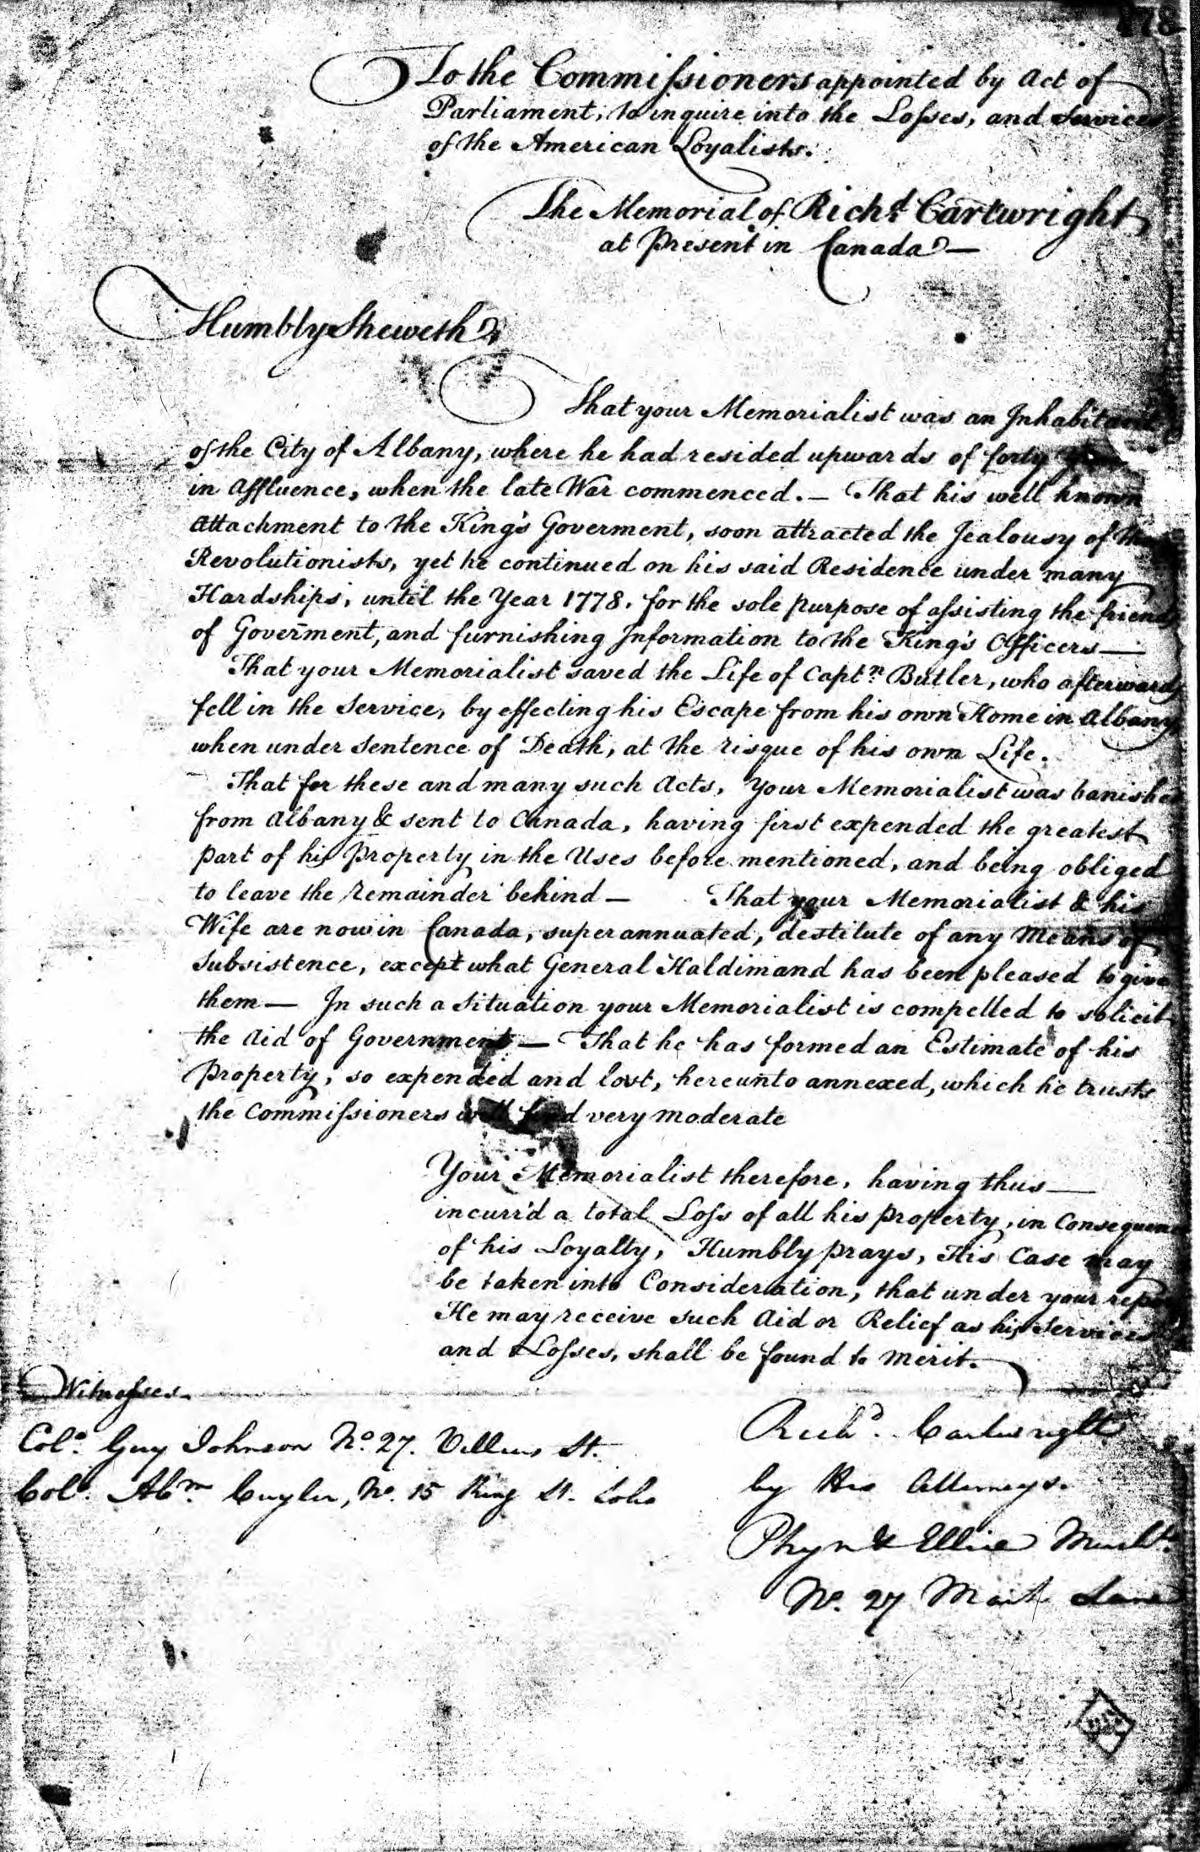 178
To the Commissioners appointed by Act of
Parliament, to inquire into the Losses, and Services
of the American Loyalists.
The Memorial of Richd. Cartwright
at Present in Canada —
Humbly Sheweth
That your Memorialist was an Inhabitant
of the City of Albany, where he had resided upwards of forty
in Affluence, when the late War commenced. — That his well known
Attachment to the King's Goverment, soon attracted the Jealousy of the
Revolutionists, yet he continued on his said Residence under many
Hardships, until the Year 1778. for the sole purpose of assisting the friends
of Goverment, and furnishing Information to the King's Officers —
That your Memorialist saved the Life of Captn. Butler, who afterwards
fell in the Service, by effecting his Escape from his own Home in Albany
when under Sentence of Death, at the risque of his own Life.
That for these and many such Acts, Your Memorialist was banished
from Albany & sent to Canada, having first expended the greatest
part of his Property in the Uses before mentioned, and being obliged
to leave the remainder behind — That your Memorialist & his
Wife are now in Canada, superannuated, destitute of any Means of
Subsistence, except what General Haldimand has been pleased to give
them — In such a Situation your Memorialist is compelled to solicit
the Aid of Government — That he has formed an Estimate of his
Property, so expended and lost, hereunto annexed, which he trusts
the Commissioners will find very moderate
Your Memorialist therefore, having thus —
incurr'd a total Loss of all his property, in Consequence
of his Loyalty, Humbly prays, His Case may
be taken into Consideration, that under your report
He may receive such Aid or Relief as his Services
and Losses, shall be found to merit.
Witnesses
Colo. Guy Johnson No. 27. Villiers St.
Colo. Abm. Cuyler, No. 15 King St. Soho
Richd. Cartwright
by His Attorneys.
Phyn & Ellice Merchts.
No. 27 Mark Lane